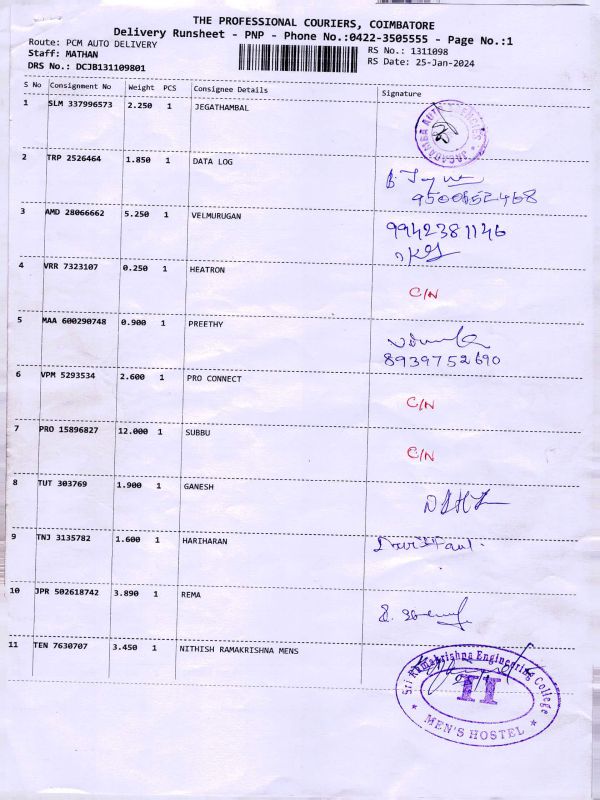 THE PROFESSIONAL COURIERS, COIMBATORE
Delivery Runsheet - PNP - Phone No.:0422-3505555 - Page No.:1
Route: PCM AUTO DELIVERY
Staff: MATHAN
DRS No.: DCJB131109801
RS No.: 1311098
RS Date: 25-Jan-2024
S No Consignment No Weight PCS Consignee Details Signature
1 SLM 337996573 2.250 1 JEGATHAMBAL
2 TRP 2526464 1.850 1 DATA LOG
3 AMD 28066662 5.250 1 VELMURUGAN
9942381146
4 VRR 7323107 0.250 1 HEATRON
C/N
5 MAA 600290748 0.900 1 PREETHY
8939752690
6 VPM 5293534 2.600 1 PRO CONNECT
C/N
7 PRO 15896827 12.000 1 SUBBU
C/N
8 TUT 303769 1.900 1 GANESH
9 TNJ 3135782 1.600 1 HARIHARAN
10 JPR 502618742 3.890 1 REMA
11 TEN 7630707 3.450 1 NITHISH RAMAKRISHNA MENS
Sri Ramakrishna Engineering College
II
MEN'S HOSTEL